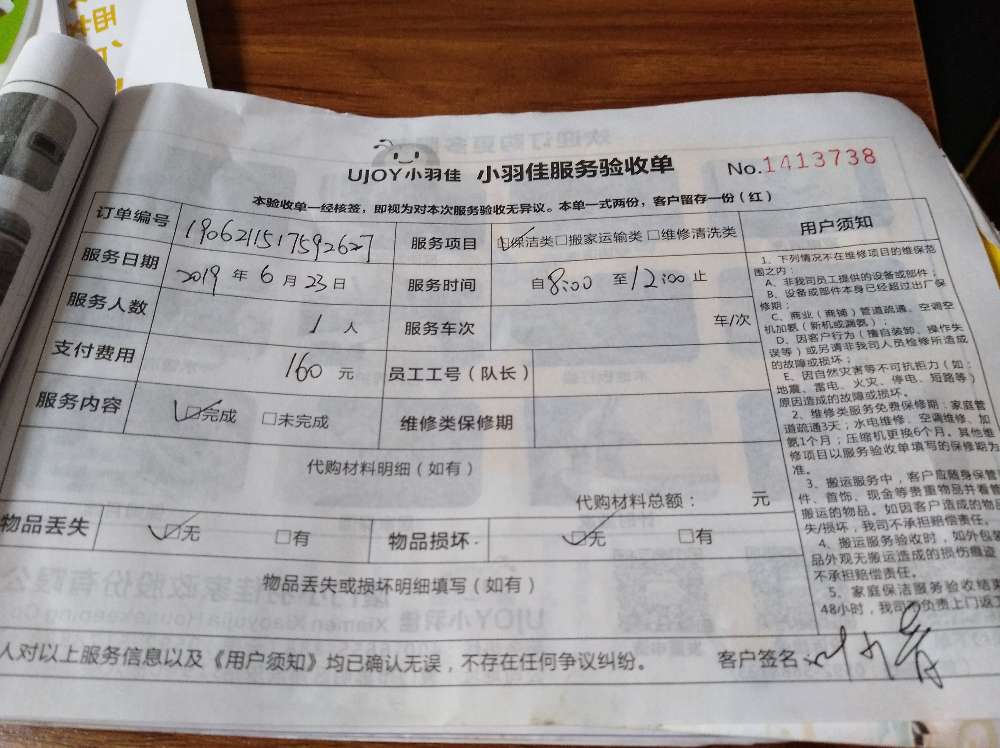 UJOY小羽佳 小羽佳服务验收单 No.1413738
本验收单一经核签，即视为对本次服务验收无异议。本单一式两份，客户留存一份（红）
订单编号 1906211517592627 服务项目 ☑保洁类□搬家运输类□维修清洗类
服务日期 2019 年 6 月 23 日 服务时间 自 8:00 至 12:00 止
服务人数 1 人 服务车次 车/次
支付费用 160 元 员工工号（队长）
服务内容 ☑完成 □未完成 维修类保修期
代购材料明细（如有）
代购材料总额： 元
物品丢失 ☑无 □有 物品损坏 ☑无 □有
物品丢失或损坏明细填写（如有）
人对以上服务信息以及《用户须知》均已确认无误，不存在任何争议纠纷。 客户签名：
用户须知
1、下列情况不在维修项目的维保范
围之内：
A、非我司员工提供的设备或部件；
B、设备或部件本身已经超过出厂保
修期；
C、商业（商铺）管道疏通、空调空
机加氨（新机或漏氨）；
D、因客户行为（擅自装卸、操作失
误等）或另请非我司人员检修所造成
的故障或损坏；
E、因自然灾害等不可抗担力（如：
地震、雷电、火灾、停电、短路等）
原因造成的故障或损坏。
2、维修类服务免费保修期：家庭管
道疏通3天；水电维修、空调维修、加
氨1个月；压缩机更换6个月。其他维
修项目以服务验收单填写的保修期为
准。
3、搬运服务中，客户应随身保管
件、首饰、现金等贵重物品并看管
搬运的物品。如因客户造成的物品
失/损坏，我司不承担赔偿责任。
4、搬运服务验收时，如外包装
品外观无搬运造成的损伤痕迹
不承担赔偿责任。
5、家庭保洁服务验收结束
48小时，我司不负责上门返